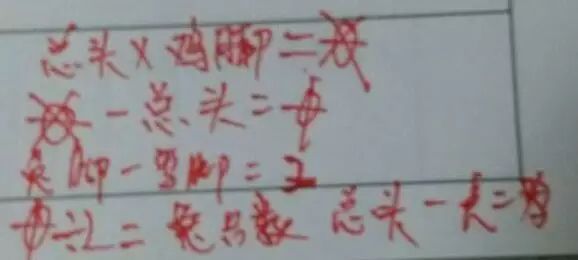 总头×鸡脚=※
※-总头=中
兔脚-鸡脚=2
中÷2=兔只数 总头-兔=鸡